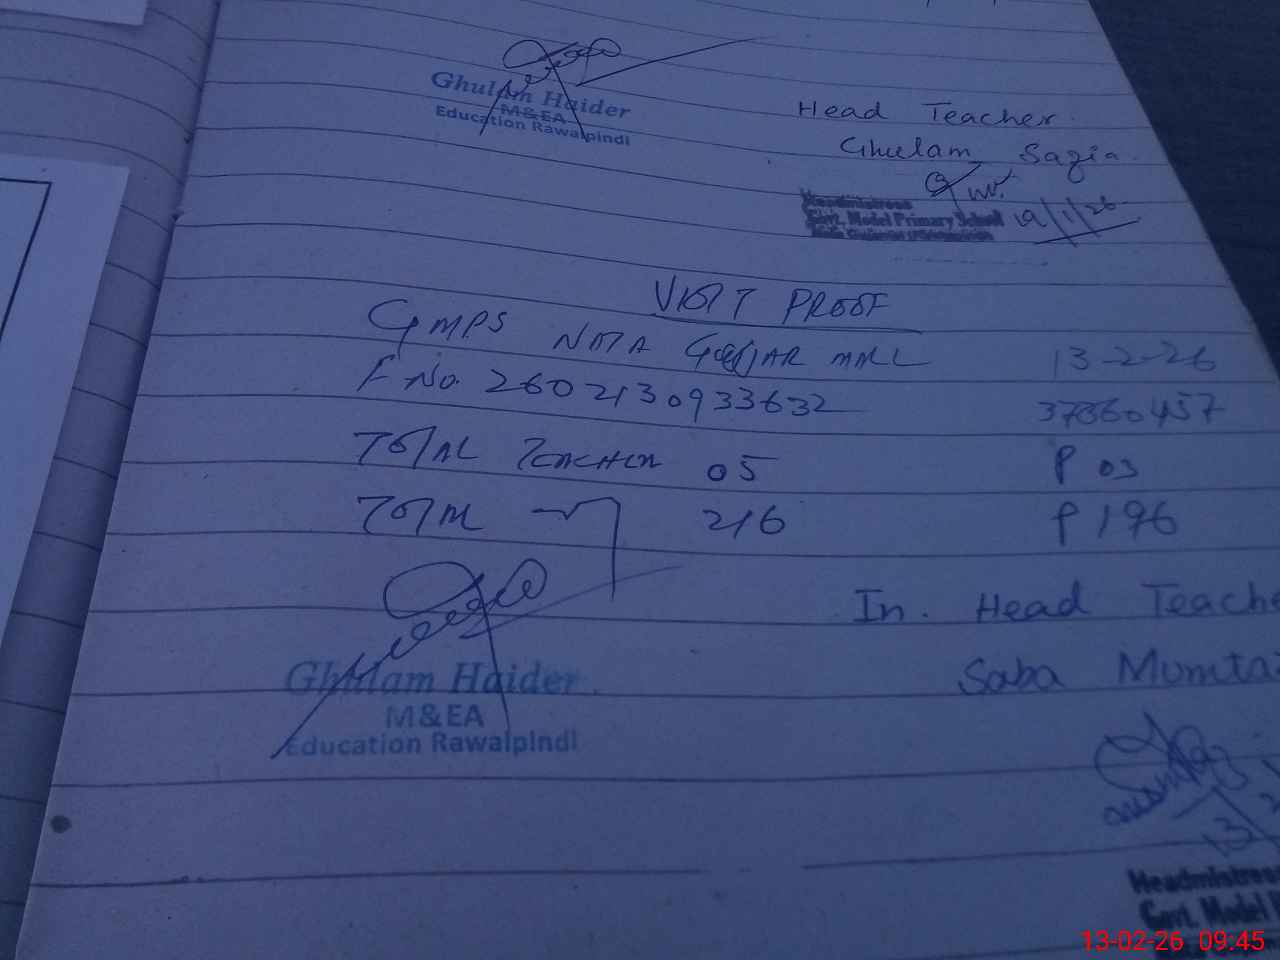 Ghulam Haider
M&EA
Education Rawalpindi
Head Teacher.
Ghulam Sazia.
Headmistress
Govt. Model Primary School
19/1/26
VISIT PROOF
GMPS NATA GUJJAR MAL 13-2-26
F No. 2602130933632 37360457
TOTAL TEACHER 05 P 03
TOTAL 216 P 196
In. Head Teache
Saba Mumta
Ghulam Haider
M&EA
Education Rawalpindi
Headmistress
Govt. Model
13-02-26 09:45